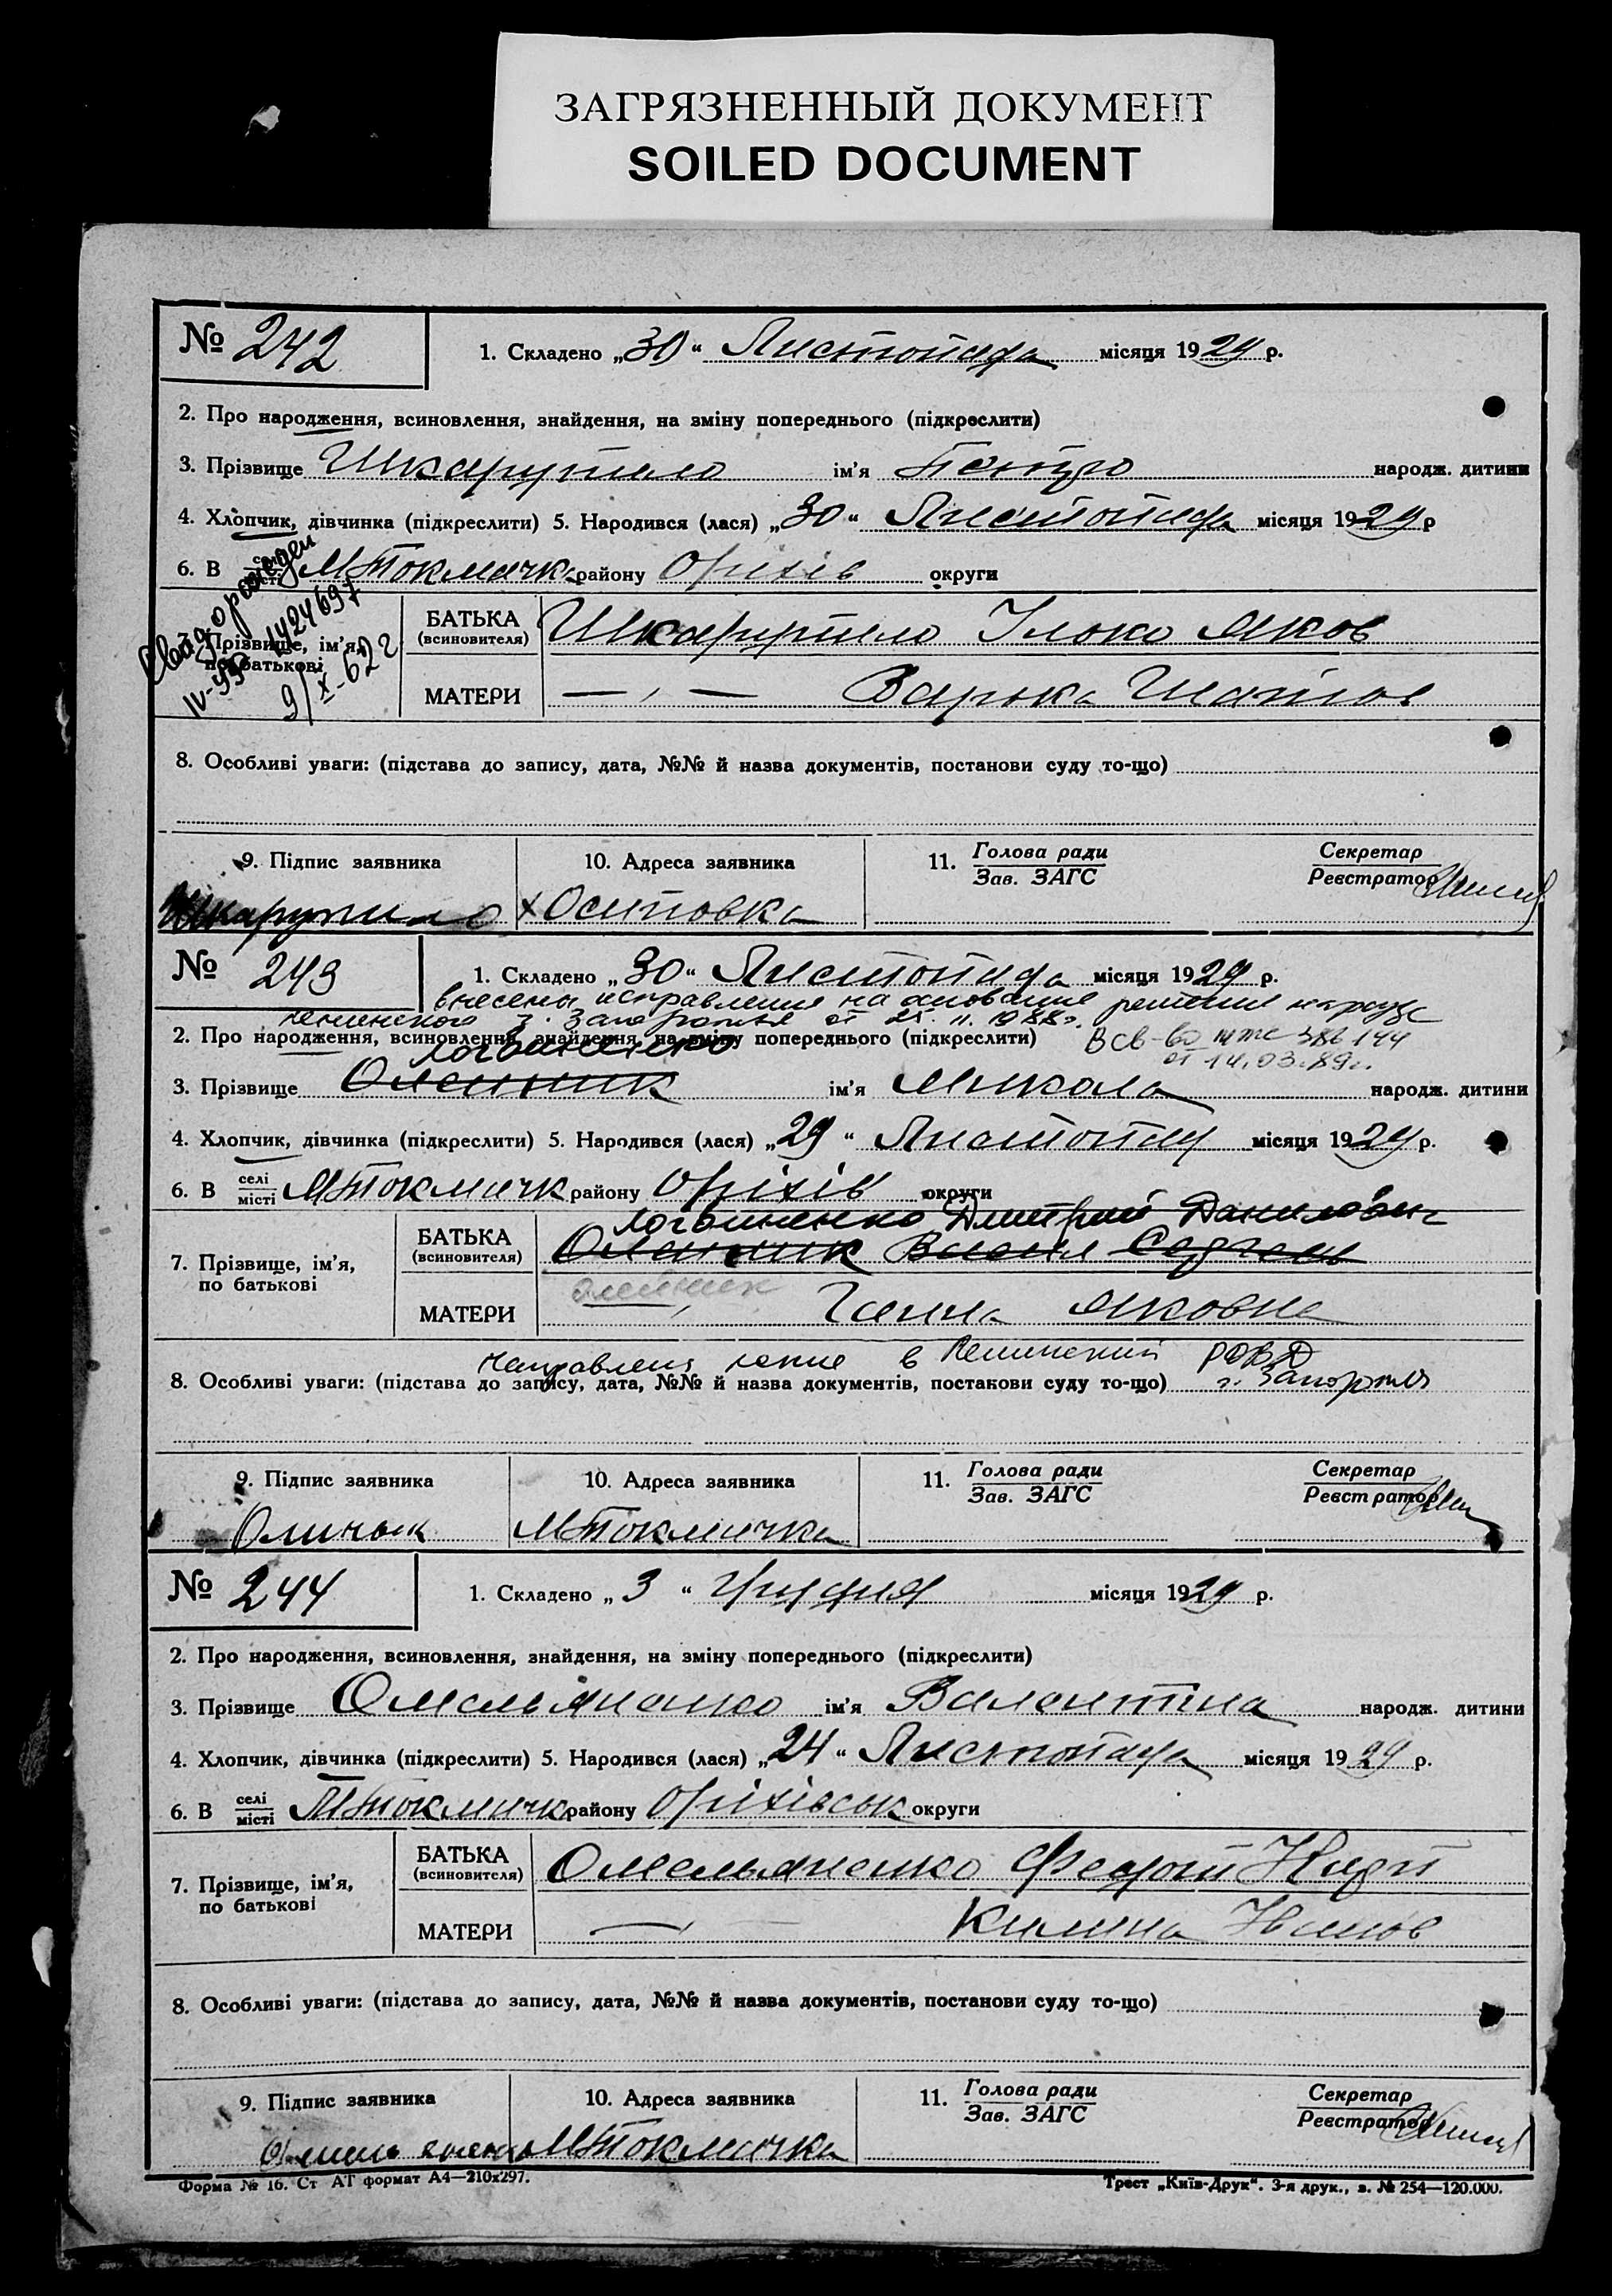 ЗАГРЯЗНЕННЫЙ ДОКУМЕНТ
SOILED DOCUMENT
№ 242
1. Складено „30“ Листопада місяця 1929 р.
2. Про народження, всиновлення, знайдення, на зміну попереднього (підкреслити)
3. Прізвище Шкарупило ім'я Петро народж. дитини
4. Хлопчик, дівчинка (підкреслити) 5. Народився (лася) „30“ Листопада місяця 1929 р
6. В селі місті МТокмачка району Оріхів округи
Прізвище, ім'я, по батькові
IV- 424697
9/X-62г
БАТЬКА (всиновителя) Шкарупило Ілько Яков
МАТЕРИ — „ — Варька
8. Особливі уваги: (підстава до запису, дата, №№ й назва документів, постанови суду то-що)
9. Підпис заявника
10. Адреса заявника
11. Голова ради
Зав. ЗАГС
Секретар
Реєстратор
Шкарупило х Осиповка
№ 243
1. Складено „30“ Листопада місяця 1929 р.
внесены исправления на основание решения нарсуда
Ленинского г. Запорожья от 25.11.1988г.
2. Про народження, всиновлення, знайдення, на зміну попереднього (підкреслити)
от 14.03.89г.
Логвиненко
3. Прізвище Олейник ім'я Микола народж. дитини
4. Хлопчик, дівчинка (підкреслити) 5. Народився (лася) „29“ Листопад місяця 1929 р.
6. В селі місті МТокмачк району Оріхів округи
Логвиненко Дмитрий Данилович
7. Прізвище, ім'я, по батькові
БАТЬКА (всиновителя) Олейник
Олейник
МАТЕРИ Ганна Яковна
Направлены копие в Ленинский РОВД
8. Особливі уваги: (підстава до запису, дата, №№ й назва документів, постанови суду то-що) г. Запорожья
9. Підпис заявника
10. Адреса заявника
11. Голова ради
Зав. ЗАГС
Секретар
Реєстратор
Олиньик МТокмачка
№ 244
1. Складено „3“ Грудня місяця 1929 р.
2. Про народження, всиновлення, знайдення, на зміну попереднього (підкреслити)
3. Прізвище Омельяненко ім'я Валентина народж. дитини
4. Хлопчик, дівчинка (підкреслити) 5. Народився (лася) „24“ Листопада місяця 1929 р.
6. В селі місті МТокмачк району Оріхівськ округи
7. Прізвище, ім'я, по батькові
БАТЬКА (всиновителя) Омельяненко Федот
МАТЕРИ — „ — Килина Іванов
8. Особливі уваги: (підстава до запису, дата, №№ й назва документів, постанови суду то-що)
9. Підпис заявника
10. Адреса заявника
11. Голова ради
Зав. ЗАГС
Секретар
Реєстратор
МТокмачка
Форма № 16. Ст АТ формат А4—210х297.
Трест „Київ-Друк“. 3-я друк., з. № 254—120.000.